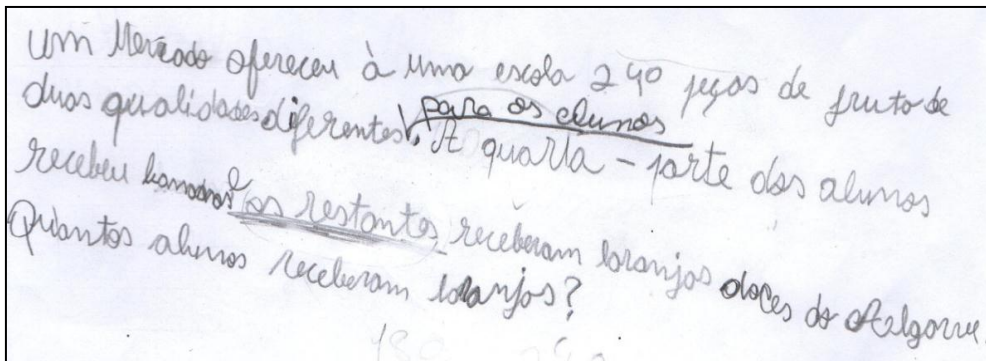 Um Mercado ofereceu à uma escola 240 peças de fruto de
duas qualidades diferentes para os alunos. A quarta-parte dos alunos
recebeu bananas e os restantes receberam laranjas doces do Algarve.
Quantos alunos receberam laranjas?
180